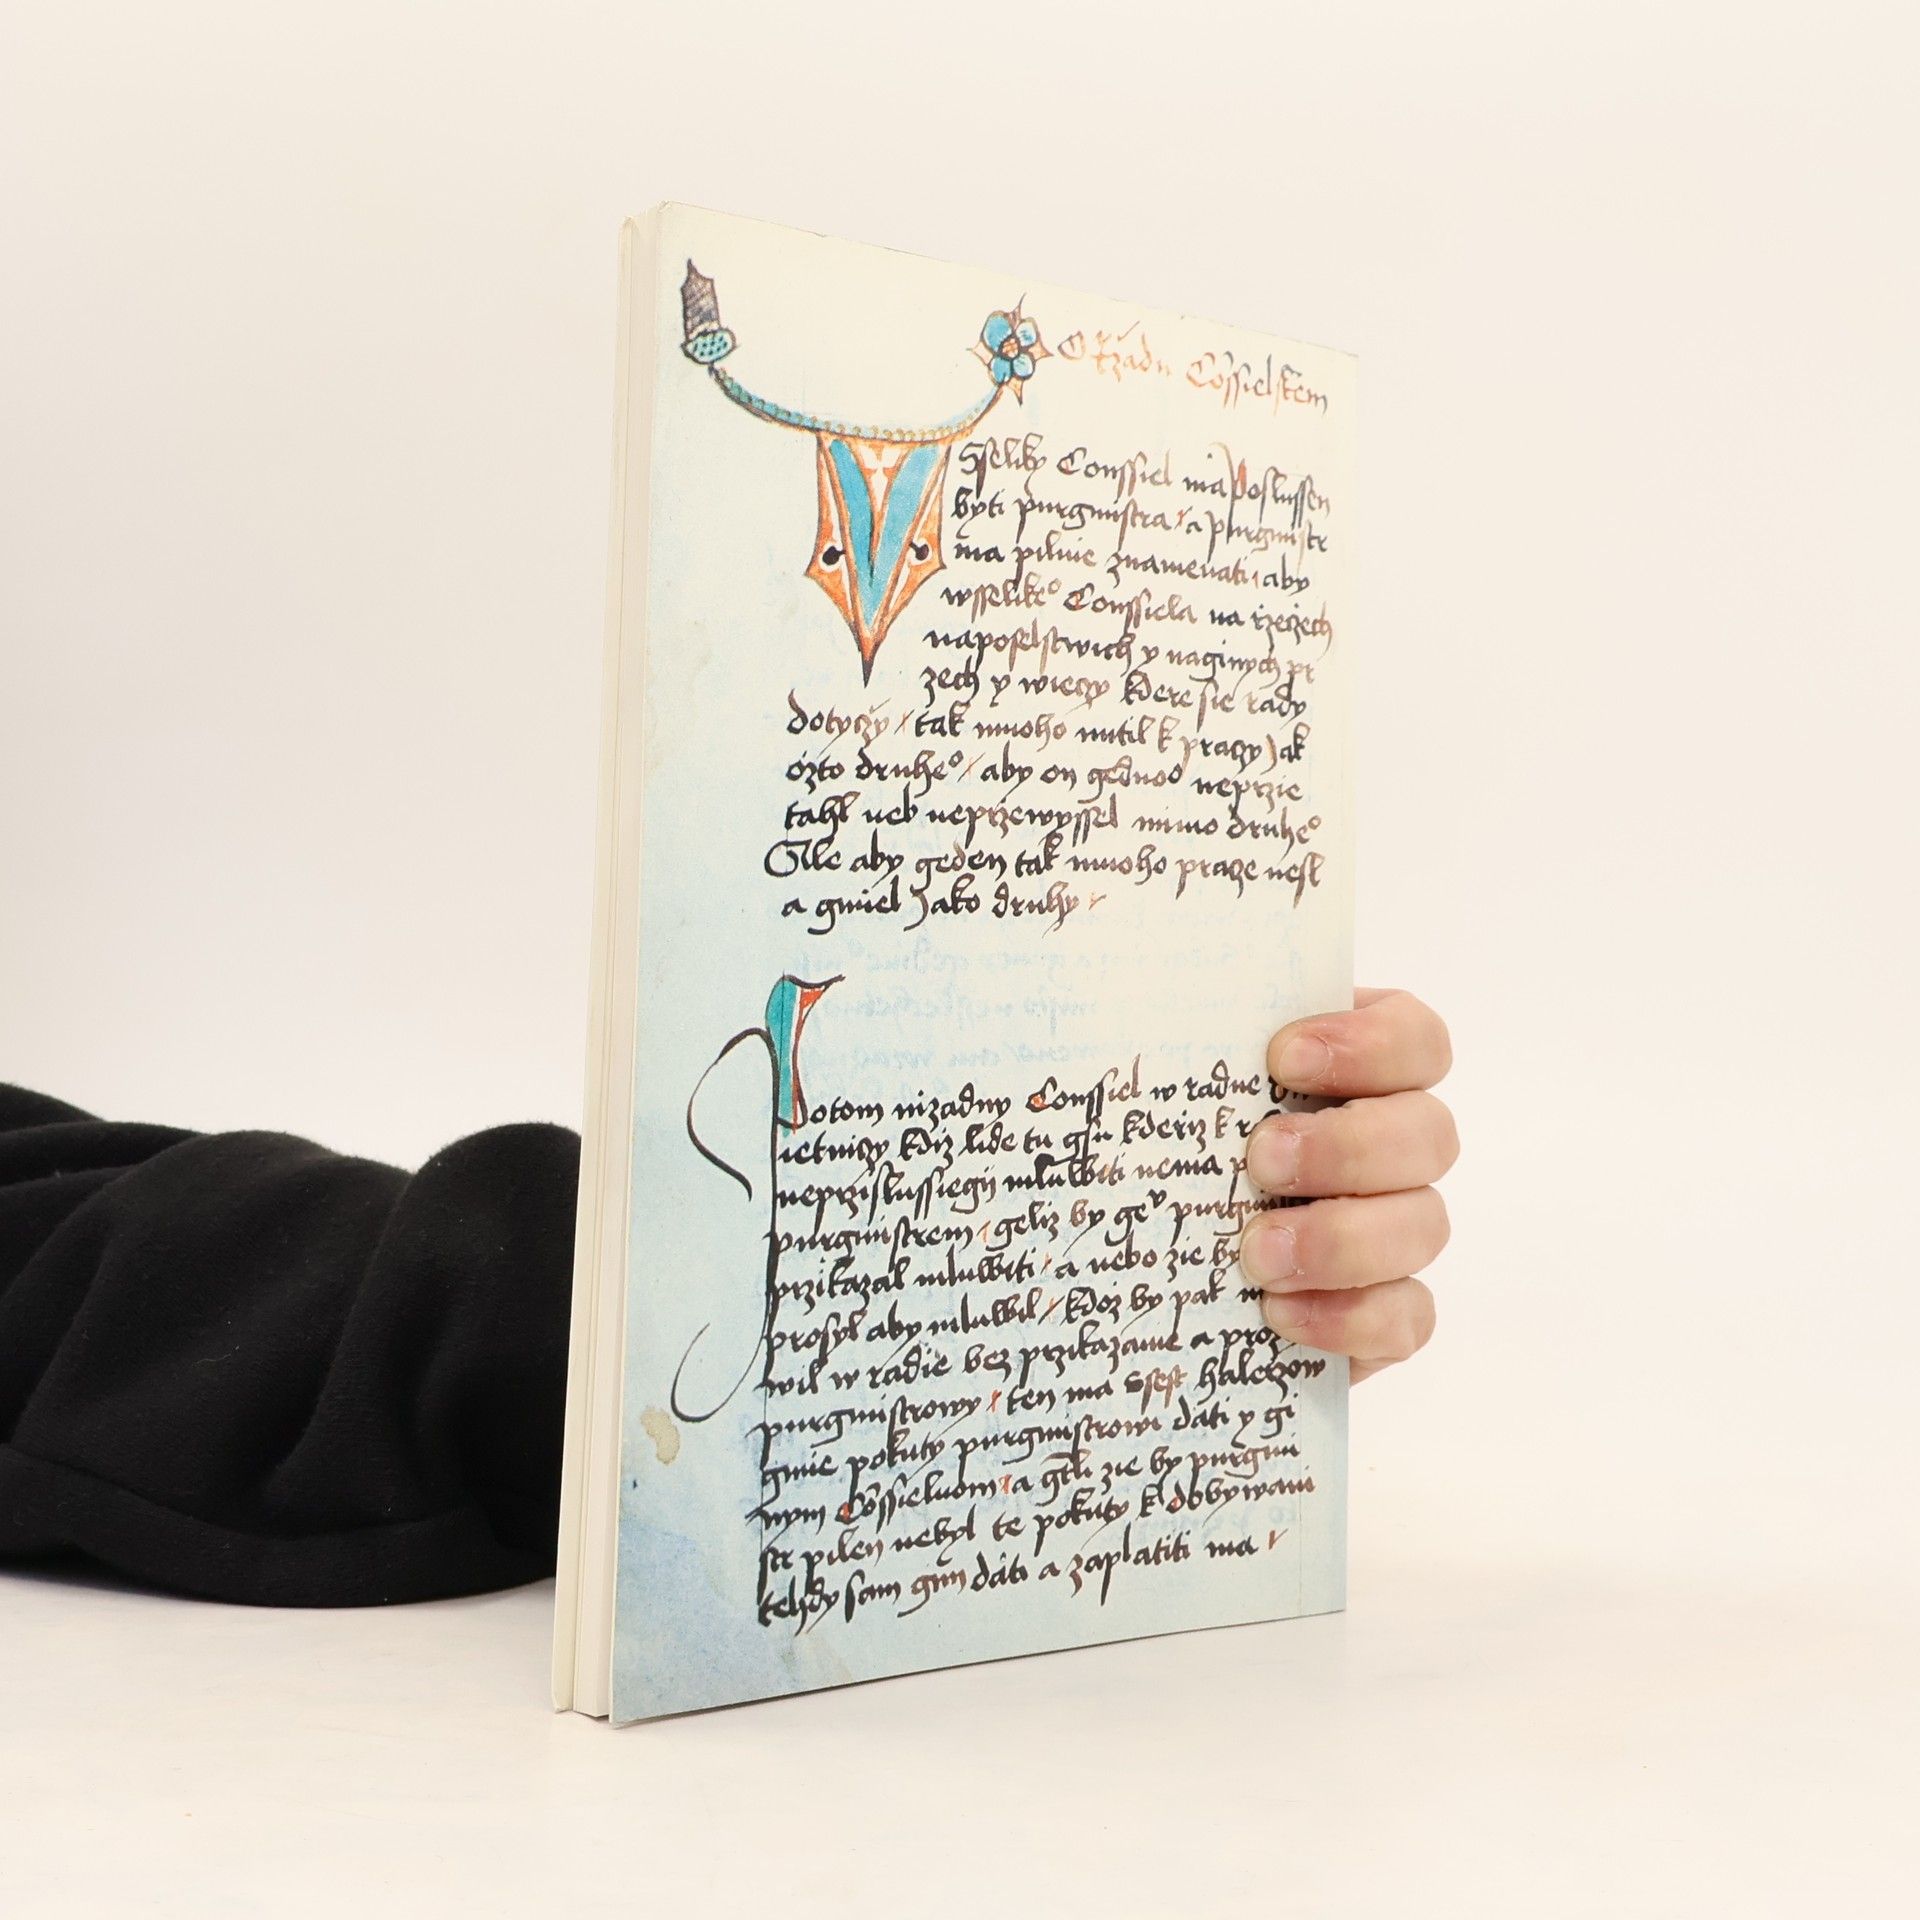 O rzadu Cossielskem
Wsseliky Conssiel ma poslussen
byti purgmistra a purgmistr
ma pilnie znamenati aby
wsselikeᵒ Conssiela na rzeczech
naposelstwich y naginych pr
zech y wieczy kdere sie rady
dotyczy / tak mnoho nutil k praczy Jak
ozto druheᵒ / aby on gednoᵒ neprzie
tahl neb neprzewyssel mimo druheᵒ
Alle aby geden tak mnoho praze nesl
a gmiel Jako druhy
Potom nizadny Conssiel w radne
ietniczy kdiz lide tu gsu kderiz k
neprzislussiegij mluwiti nema
purgmistrem geliz by geᵛ
przikazal mluwiti / a nebo zie by
prosyl aby mluwil / kdoz by pak
wil w radie bez przikazanie a
purgmistrowy / ten ma ssest haleczow
gmie pokuty purgmistrowi dati y gi
nym Cossieluom a gtli zie by purgmi
str pilen nebyl te pokuty k dobywani
tehdy sam gim dati a zaplatiti ma